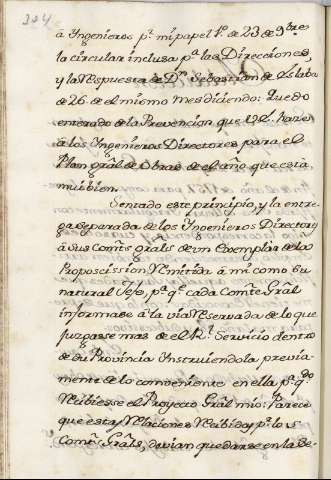 324
á Ingenieros pr. mi papel 1º de 23 de 9bre
la circular inclusa pa. las Direcciones,
y la Respuesta de Dn. Sebastian de Eslaba
de 26 de el mismo mes diciendo: Quedo
enterado de la Prevencion que V.E. hace
á los Ingenieros Directores para el
Plan gral de Obras de el año que está
mui bien.
Sentado este principio, y la entre-
ga separada de los Ingenieros Directores
á sus Comtes grales de un Exemplar de la
Proposcission Remitida á mi como su
natural Xefe, pa. qe. cada Comte Gral
informase á la via Reservada de lo que
Juzgase mas de el Rl. Servicio dentro
de su Provincia Instruiendola previa-
mente de lo combeniente en ella pa. qdo
Recibiesse el Proyecto Gral mio: Parece
que estas Relaciones Recibidas pr. los
Comtes Grals, devian quedarse en la Re-